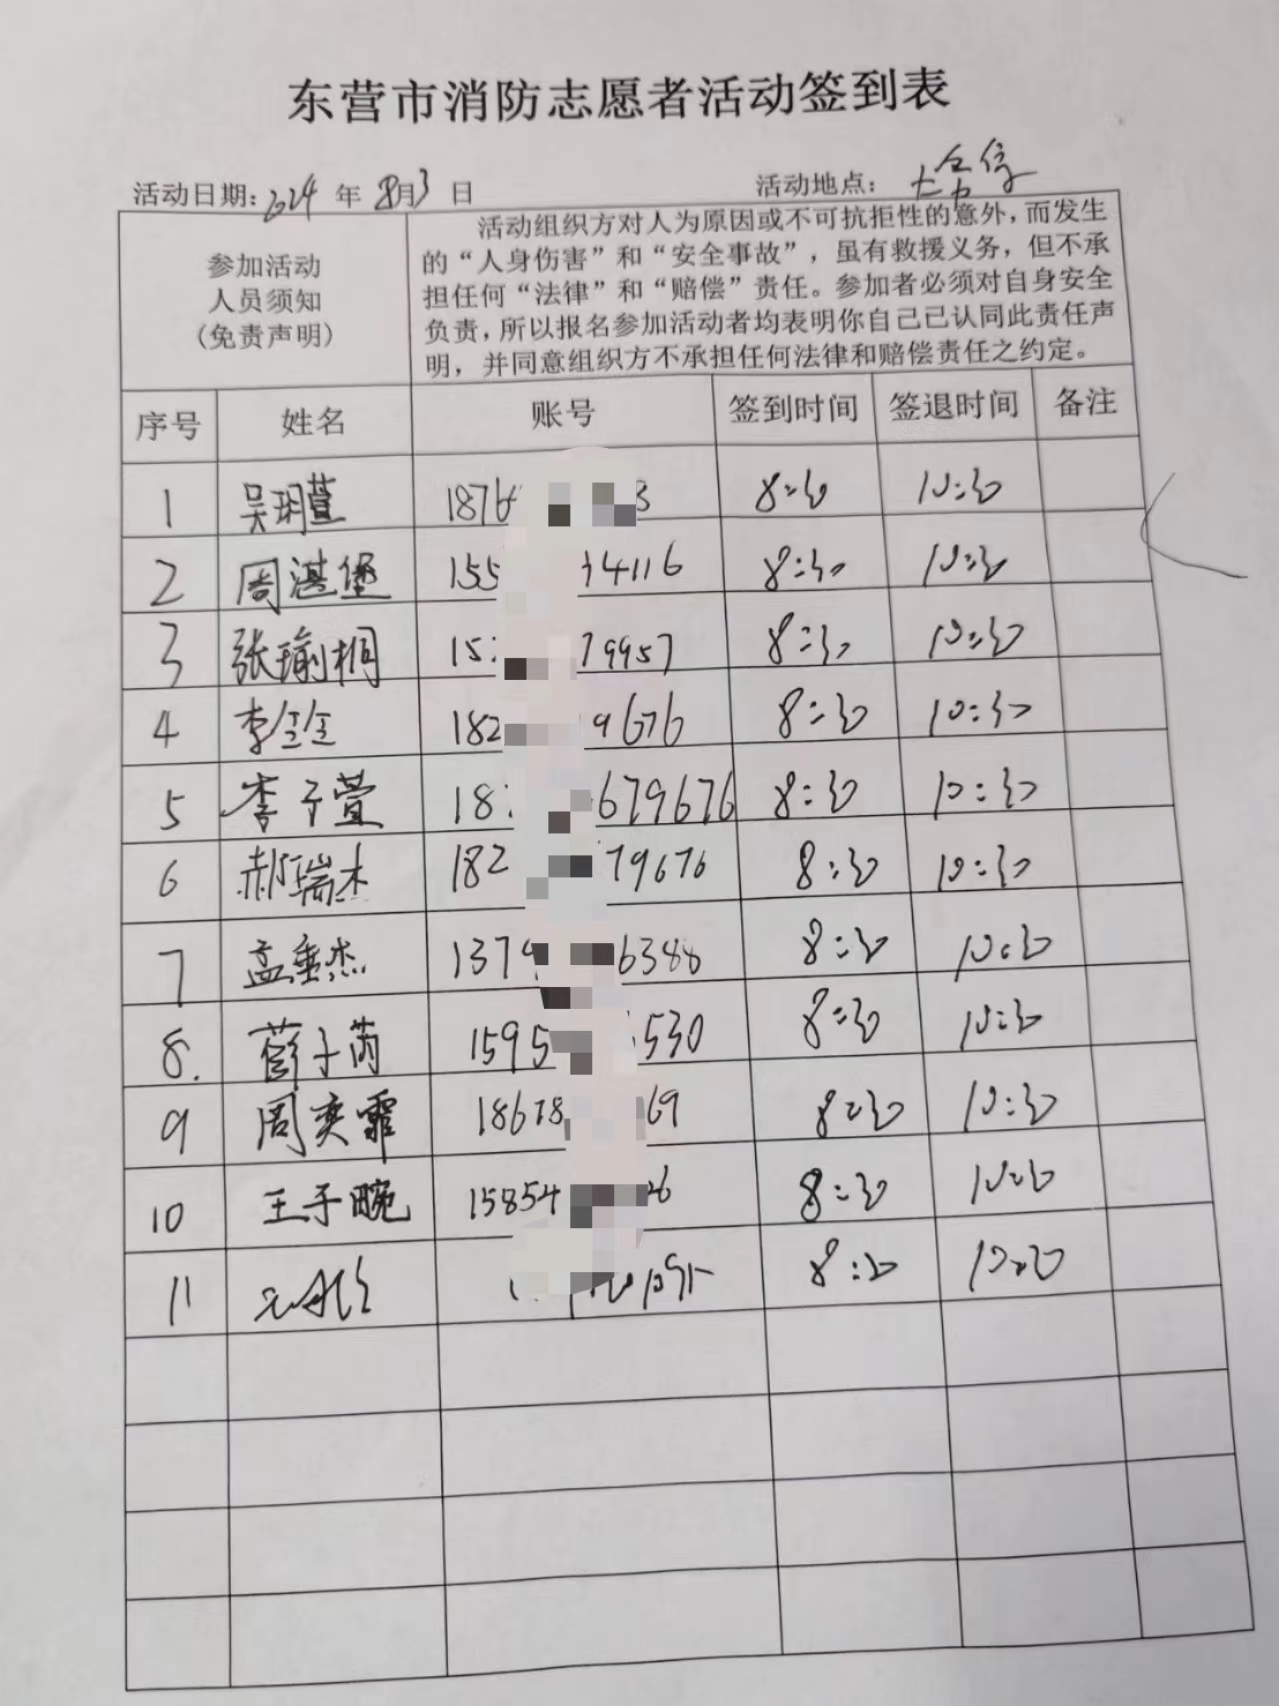 东营市消防志愿者活动签到表
活动日期:2024 年 8月3 日 活动地点:
参加活动
人员须知
(免责声明)
活动组织方对人为原因或不可抗拒性的意外，而发生
的“人身伤害”和“安全事故”，虽有救援义务，但不承
担任何“法律”和“赔偿”责任。参加者必须对自身安全
负责，所以报名参加活动者均表明你自己已认同此责任声
明，并同意组织方不承担任何法律和赔偿责任之约定。
序号 姓名 账号 签到时间 签退时间 备注
1 吴玥萱 1876 3 8:30 10:30
2 周湛堡 155 14116 8:30 10:30
3 张瑜桐 15 79957 8:30 10:30
4 李金金 182 9676 8:30 10:30
5 李子萱 18 679676 8:30 10:30
6 郝瑞杰 182 79676 8:30 10:30
7 孟垂杰 137 6388 8:30 10:30
8. 薛子芮 1595 530 8:30 10:30
9 周奕霏 18678 69 8:30 10:30
10 王子畹 15854 26 8:30 10:30
11 8:30 10:30